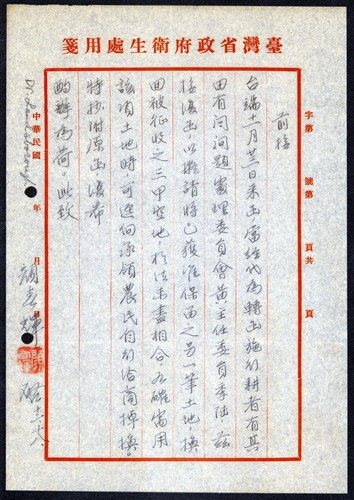 臺灣省政府衛生處用箋
字第 號第 頁共 頁
前接
台端十一月廿三日來函,當經代為轉函施行耕者有其
田有關問題處理委員會黃主任委員季陸,茲
接復函,以擬請將已獲准保留之另一筆土地,換
田被征收之三甲空地,於法未盡相合,在確需用
該項土地時,可逕向承領農民自行洽商掉換。
特抄附原函復希
酌辦為荷。此致
中華民國 年 月 日
顏春輝
啟 十二、十八